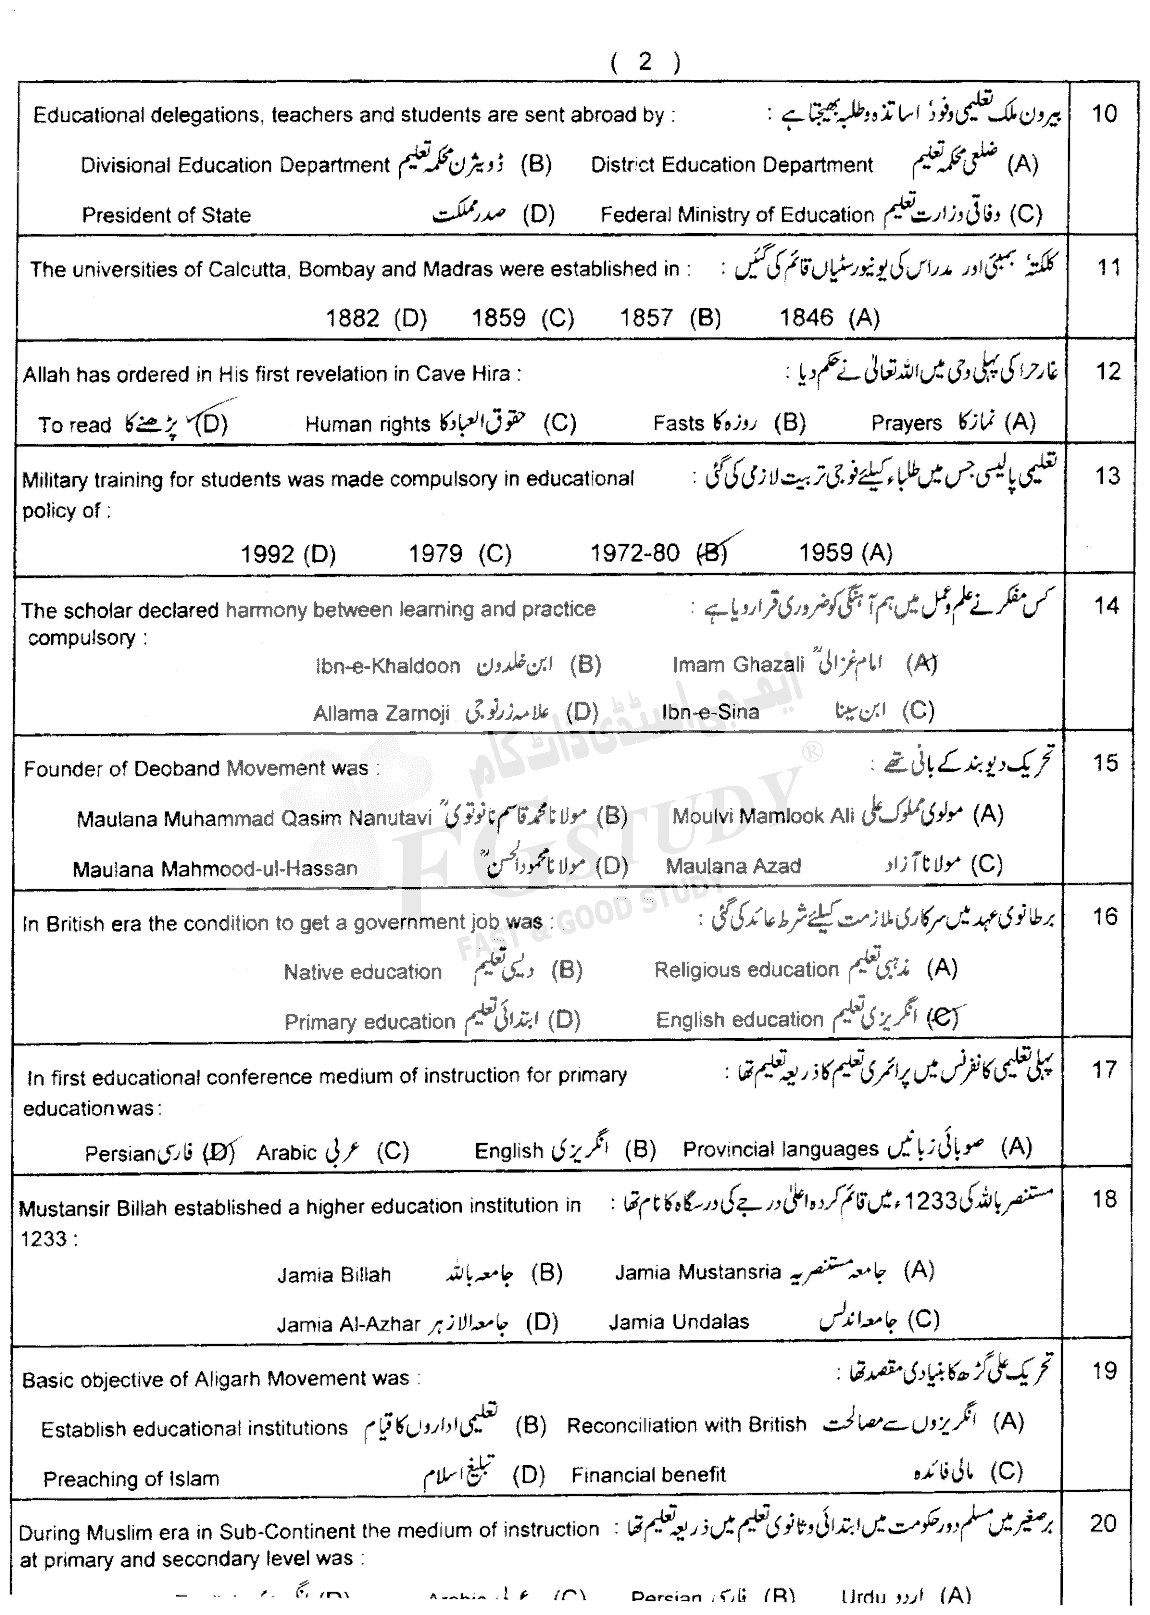 ( 2 )
Educational delegations, teachers and students are sent abroad by : بیرون ملک تعلیمی وفود' اساتذہ و طلبہ بھیجتا ہے : 10
Divisional Education Department ڈویژن محکمہ تعلیم (B) District Education Department ضلعی محکمہ تعلیم (A)
President of State صدر مملکت (D) Federal Ministry of Education وفاقی وزارت تعلیم (C)
The universities of Calcutta, Bombay and Madras were established in : کلکتہ' بمبئی اور مدراس کی یونیورسٹیاں قائم کی گئیں : 11
1882 (D) 1859 (C) 1857 (B) 1846 (A)
Allah has ordered in His first revelation in Cave Hira : غار حرا کی پہلی وحی میں اللہ تعالیٰ نے حکم دیا : 12
To read پڑھنے کا (D) Human rights حقوق العباد کا (C) Fasts روزہ کا (B) Prayers نماز کا (A)
Military training for students was made compulsory in educational تعلیمی پالیسی جس میں طلباء کیلئے فوجی تربیت لازمی کی گئی : 13
policy of :
1992 (D) 1979 (C) 1972-80 (B) 1959 (A)
The scholar declared harmony between learning and practice کس مفکر نے علم و عمل میں ہم آہنگی کو ضروری قرار دیا ہے : 14
compulsory :
Ibn-e-Khaldoon ابن خلدون (B) Imam Ghazali امام غزالیؒ (A)
Allama Zarnoji علامہ زرنوجی (D) Ibn-e-Sina ابن سینا (C)
ایف جی اسٹڈی ڈاٹ کام
Founder of Deoband Movement was : تحریک دیوبند کے بانی تھے : 15
Maulana Muhammad Qasim Nanutavi مولانا محمد قاسم نانوتویؒ (B) Moulvi Mamlook Ali مولوی مملوک علی (A)
FG STUDY ®
Maulana Mahmood-ul-Hassan مولانا محمود الحسنؒ (D) Maulana Azad مولانا آزاد (C)
FAST & GOOD STUDY
In British era the condition to get a government job was : برطانوی عہد میں سرکاری ملازمت کیلئے شرط عائد کی گئی : 16
Native education دیسی تعلیم (B) Religious education مذہبی تعلیم (A)
Primary education ابتدائی تعلیم (D) English education انگریزی تعلیم (C)
In first educational conference medium of instruction for primary پہلی تعلیمی کانفرنس میں پرائمری تعلیم کا ذریعہ تعلیم تھا : 17
education was :
Persian فارسی (D) Arabic عربی (C) English انگریزی (B) Provincial languages صوبائی زبانیں (A)
Mustansir Billah established a higher education institution in مستنصر باللہ کی 1233ء میں قائم کردہ اعلیٰ درجے کی درسگاہ کا نام تھا : 18
1233 :
Jamia Billah جامعہ باللہ (B) Jamia Mustansria جامعہ مستنصریہ (A)
Jamia Al-Azhar جامعہ الازہر (D) Jamia Undalas جامعہ اندلس (C)
Basic objective of Aligarh Movement was : تحریک علی گڑھ کا بنیادی مقصد تھا : 19
Establish educational institutions تعلیمی اداروں کا قیام (B) Reconciliation with British انگریزوں سے مصالحت (A)
Preaching of Islam تبلیغ اسلام (D) Financial benefit مالی فائدہ (C)
During Muslim era in Sub-Continent the medium of instruction برصغیر میں مسلم دور حکومت میں ابتدائی و ثانوی تعلیم میں ذریعہ تعلیم تھا : 20
at primary and secondary level was :
(D) Arabic عربی (C) Persian فارسی (B) Urdu اردو (A)